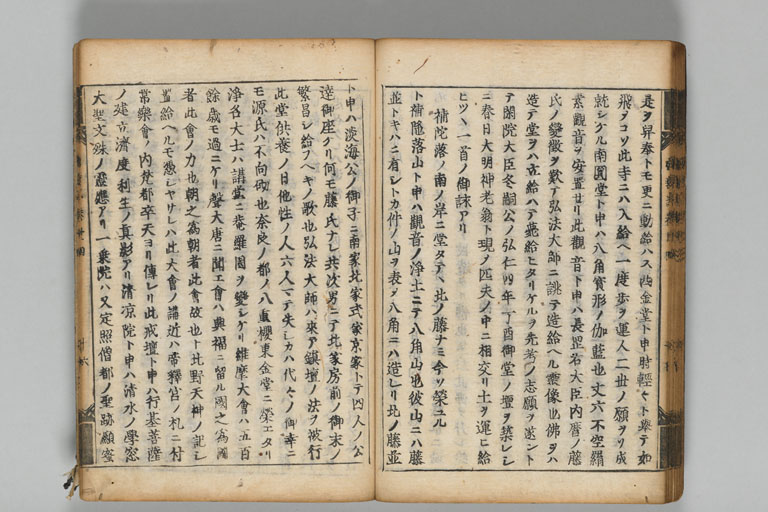 是ヲ舁奉トモ更ニ動給ハス西金堂ト申肘輕々ト擧テ如
飛ヲコソ此寺ニハ入給ヘ一度歩ヲ運人二世ノ願ヲリ成
就シケル南圓堂ト申ハ八角寳形ノ伽藍也丈六不空羂
索觀音ヲ安置セリ此觀音ト申ハ長岡右大臣内麿ノ藤
氏ノ變微ヲ歎テ弘法大師ニ誂テ造給ヘル靈像也佛ヲハ
造テ堂ヲハ立給ハテ薨給ヒタリケルヲ先考ノ志願ヲ遂ント
テ閑院大臣冬嗣公ノ弘仁四年丁酉御堂ノ壇ヲ築レシ
ニ春日大明神老翁ト現ヲ匹夫ノ中ニ相交リ土ヲ運ヒ給
ヒツヽ一首ノ御詠アリ
補陀落ノ南ノ岸ニ堂タテヽ北ノ藤ナミ今ソ榮ユル
ト補陀落山ト申ハ觀音ノ浄土ニテ八角山也彼山ニハ藤
並トキハニ有レトカ件ノ山ヲ表メ八角ニハ造レリ北ノ藤並
ト申ハ淡海公ノ御子ニ南家北家式家京家トテ四人ノ公
達御座ケリ何モ藤氏ナレ共次男ニテ北家房前ノ御末ノ
繁昌シ給フヘキノ歌也弘法大師ハ來ア鎮壇ノ法ヲ被行
此堂供養ノ日他性ノ人六人マテ失シカハ代々ノ御幸ニ
モ源氏ハ不向砌也奈良ノ都ノ八重櫻東金堂ニ榮エタリ
淨名大士ハ講堂ニ菴羅園ヲ變シケリ維摩大會ハ五百
餘歳モ過ニケリ聲大唐ニ聞エ會ハ興福ニ留ル國之爲國
者此會ノ力也朝之爲朝者此會故也ト北野天神ノ記シ
置給ヘルモ憑シヤサレハ此大會ノ講匠ハ帝釋宮ノ札ニ付
常樂會ノ内梵都卒天ヨリ傳レリ此戒壇ト申ハ行基菩薩
ノ建立濟度利生ノ眞影アリ清凉院ト申ハ清水ノ學窓
大聖文殊ノ靈應アリ一乗院ハ又定照僧都ノ聖跡顯蜜